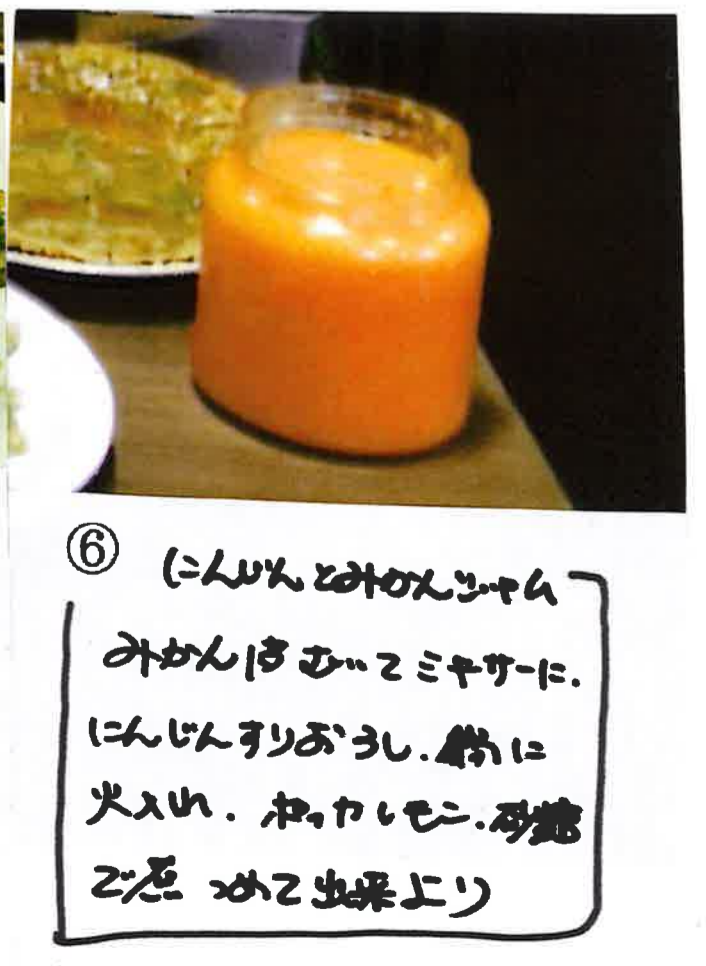 ⑥ にんじんとみかんジャム
みかんはむいてミキサーに.
にんじんすりおろし. に
火入れ. ポッカレモン.砂糖
で煮つめて出来上り